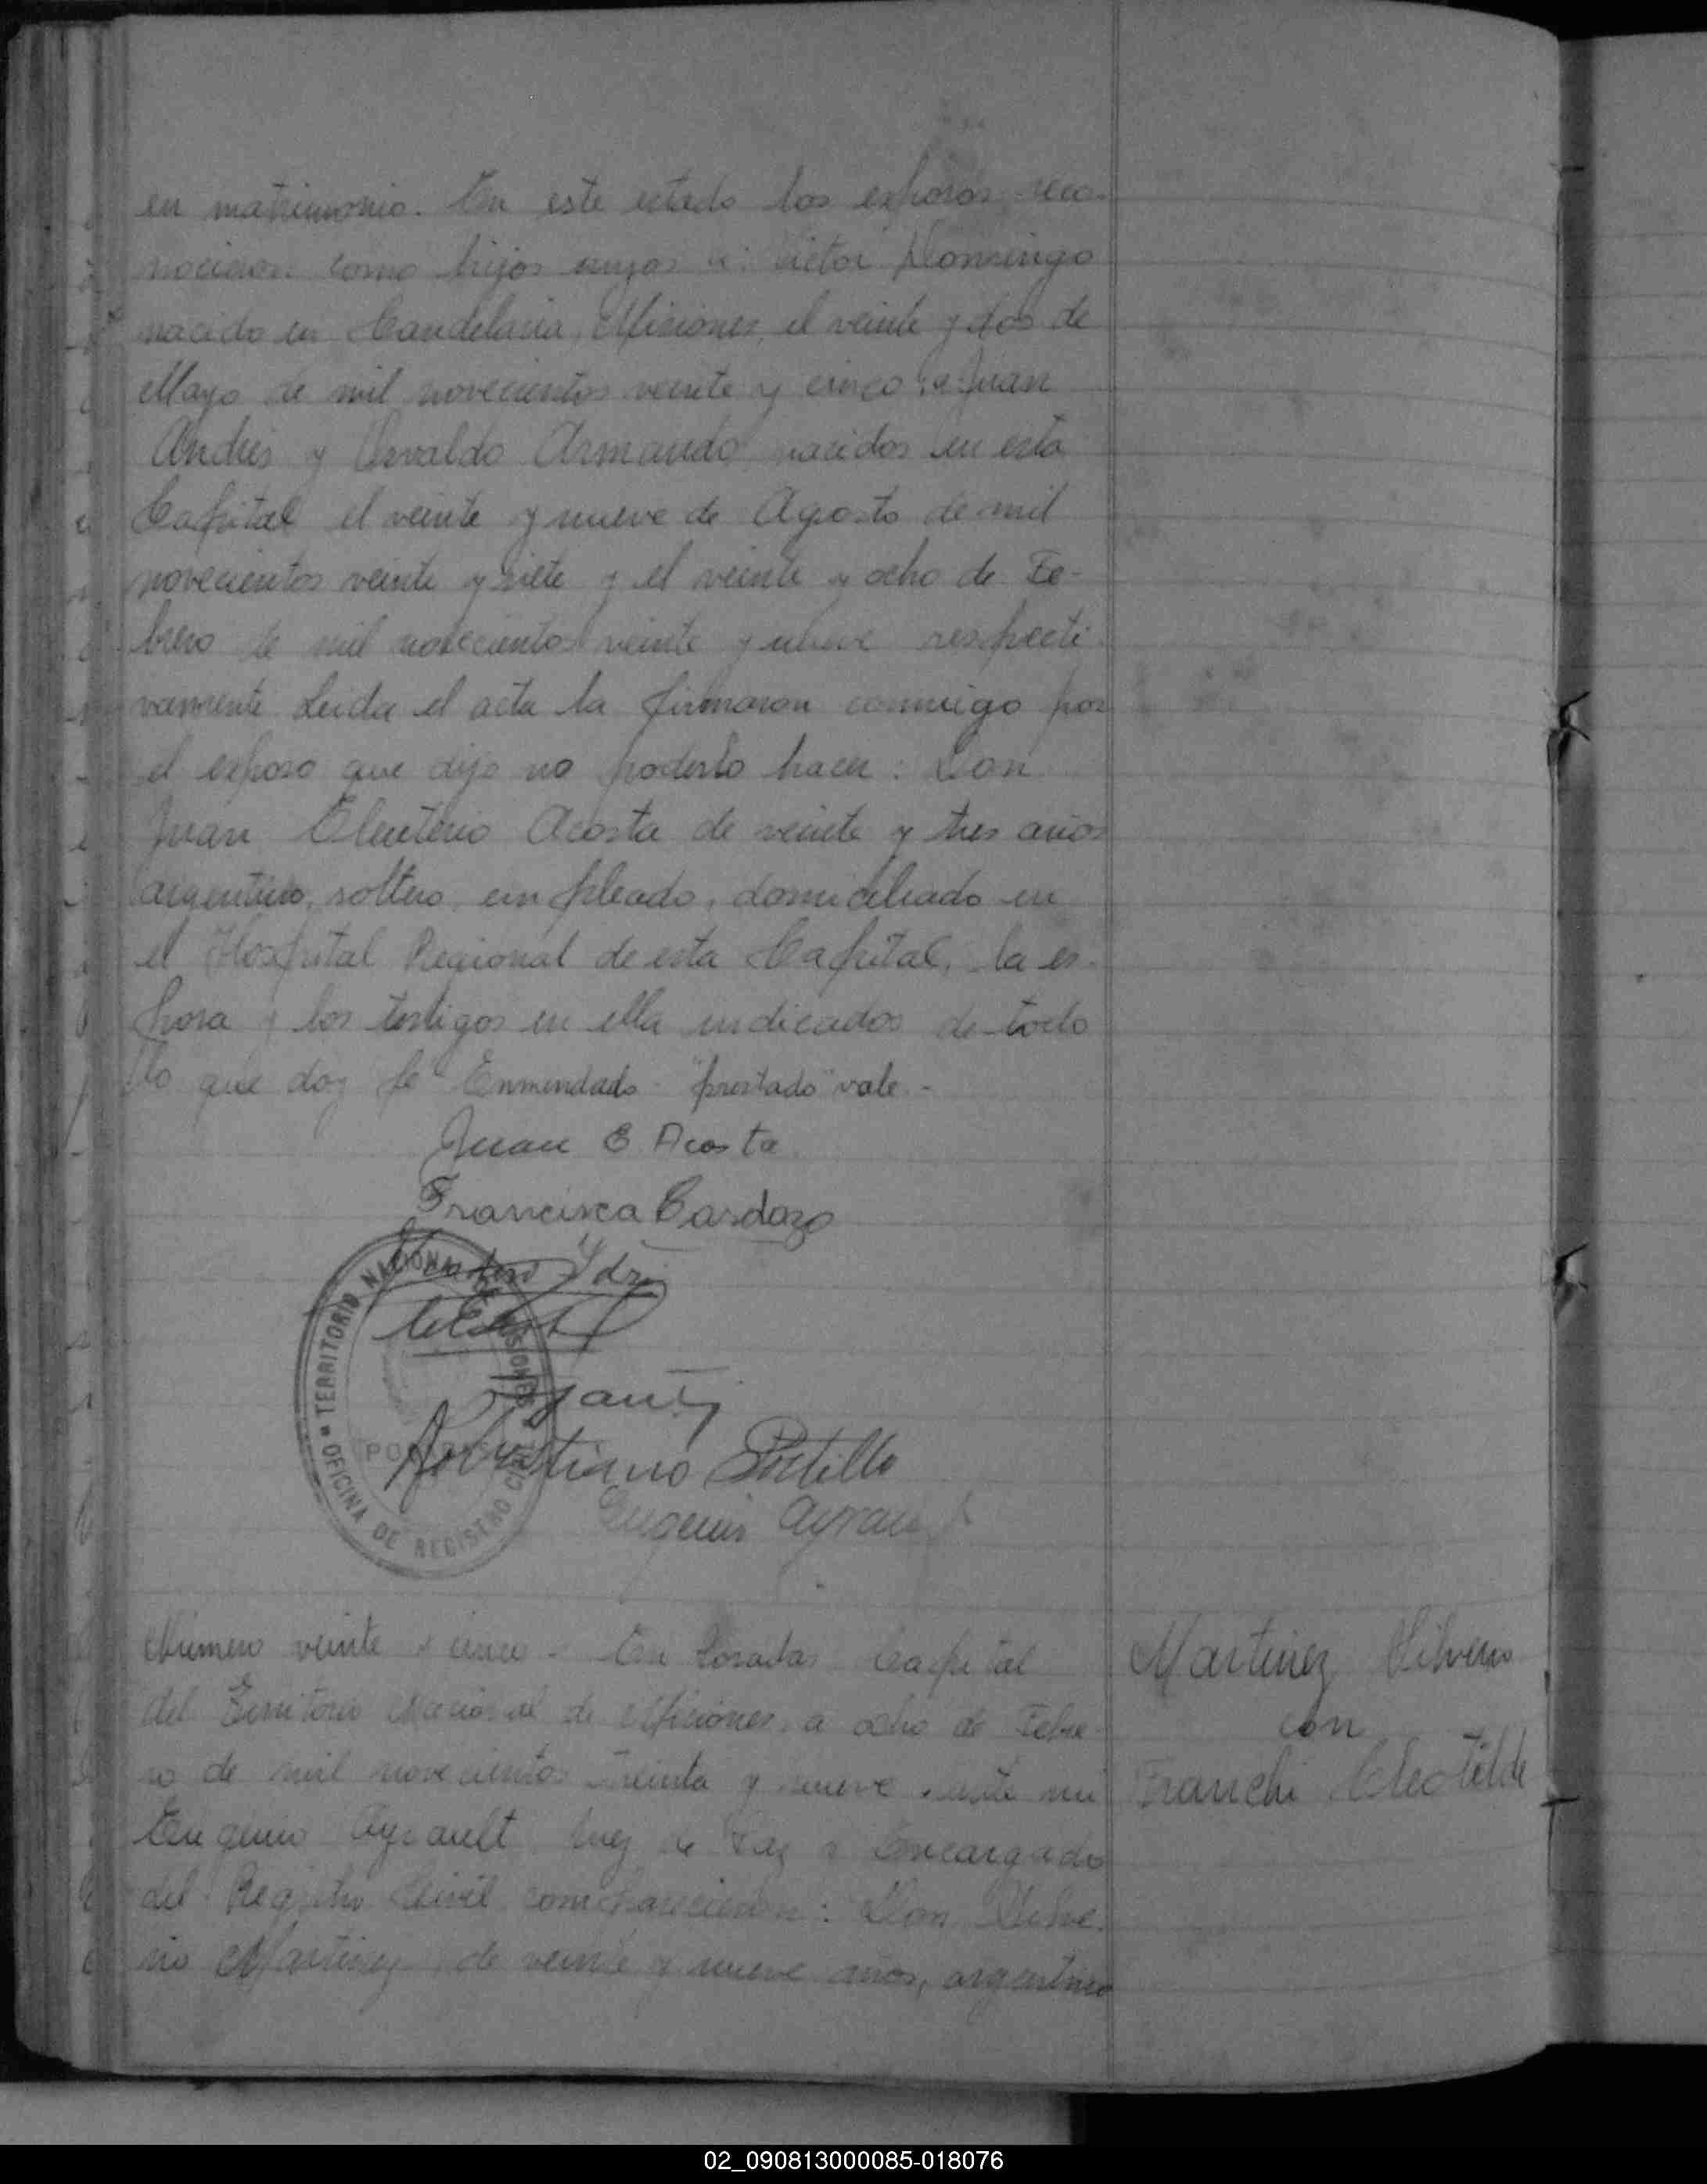 en matrimonio. En este estado los esposos reco-
nocieron como hijos suyos a: Victor Domingo
nacido en Candelaria, Misiones, el veinte y dos de
Mayo de mil novecientos veinte y cinco; a Juan
Andrés y Osvaldo Armando nacidos en esta
Capital el veinte y nueve de Agosto de mil
novecientos veinte y siete y el veinte y ocho de Fe-
brero de mil novecientos veinte y nueve respecti-
vamente Leida el acta la firmaron conmigo por
el esposo que dijo no poderlo hacer: Don
Juan Eleuterio Acosta de veinte y tres años
argentino, soltero, empleado, domiciliado en
el Hospital Regional de esta Capital, la es-
posa y los testigos en ella indicados de todo
lo que doy fe Enmendado - "prestado" vale -
Juan E Acosta
Francisca Cardozo
TERRITORIO NACIONAL DE MISIONES
OFICINA DE REGISTRO CIVIL
POSADAS
Portillo
Eugenio Ayrault
Numero veinte y cinco - En Posadas Capital
del Territorio Nacional de Misiones, a ocho de Febre-
ro de mil novecientos treinta y nueve, ante mi
Eugenio Ayrault Juez de Paz y Encargado
del Registro Civil comparecieron: Don Silve-
rio Martinez, de veinte y nueve años, argentino
Martinez Silverio
con
Franchi Cleotilde
02_090813000085-018076